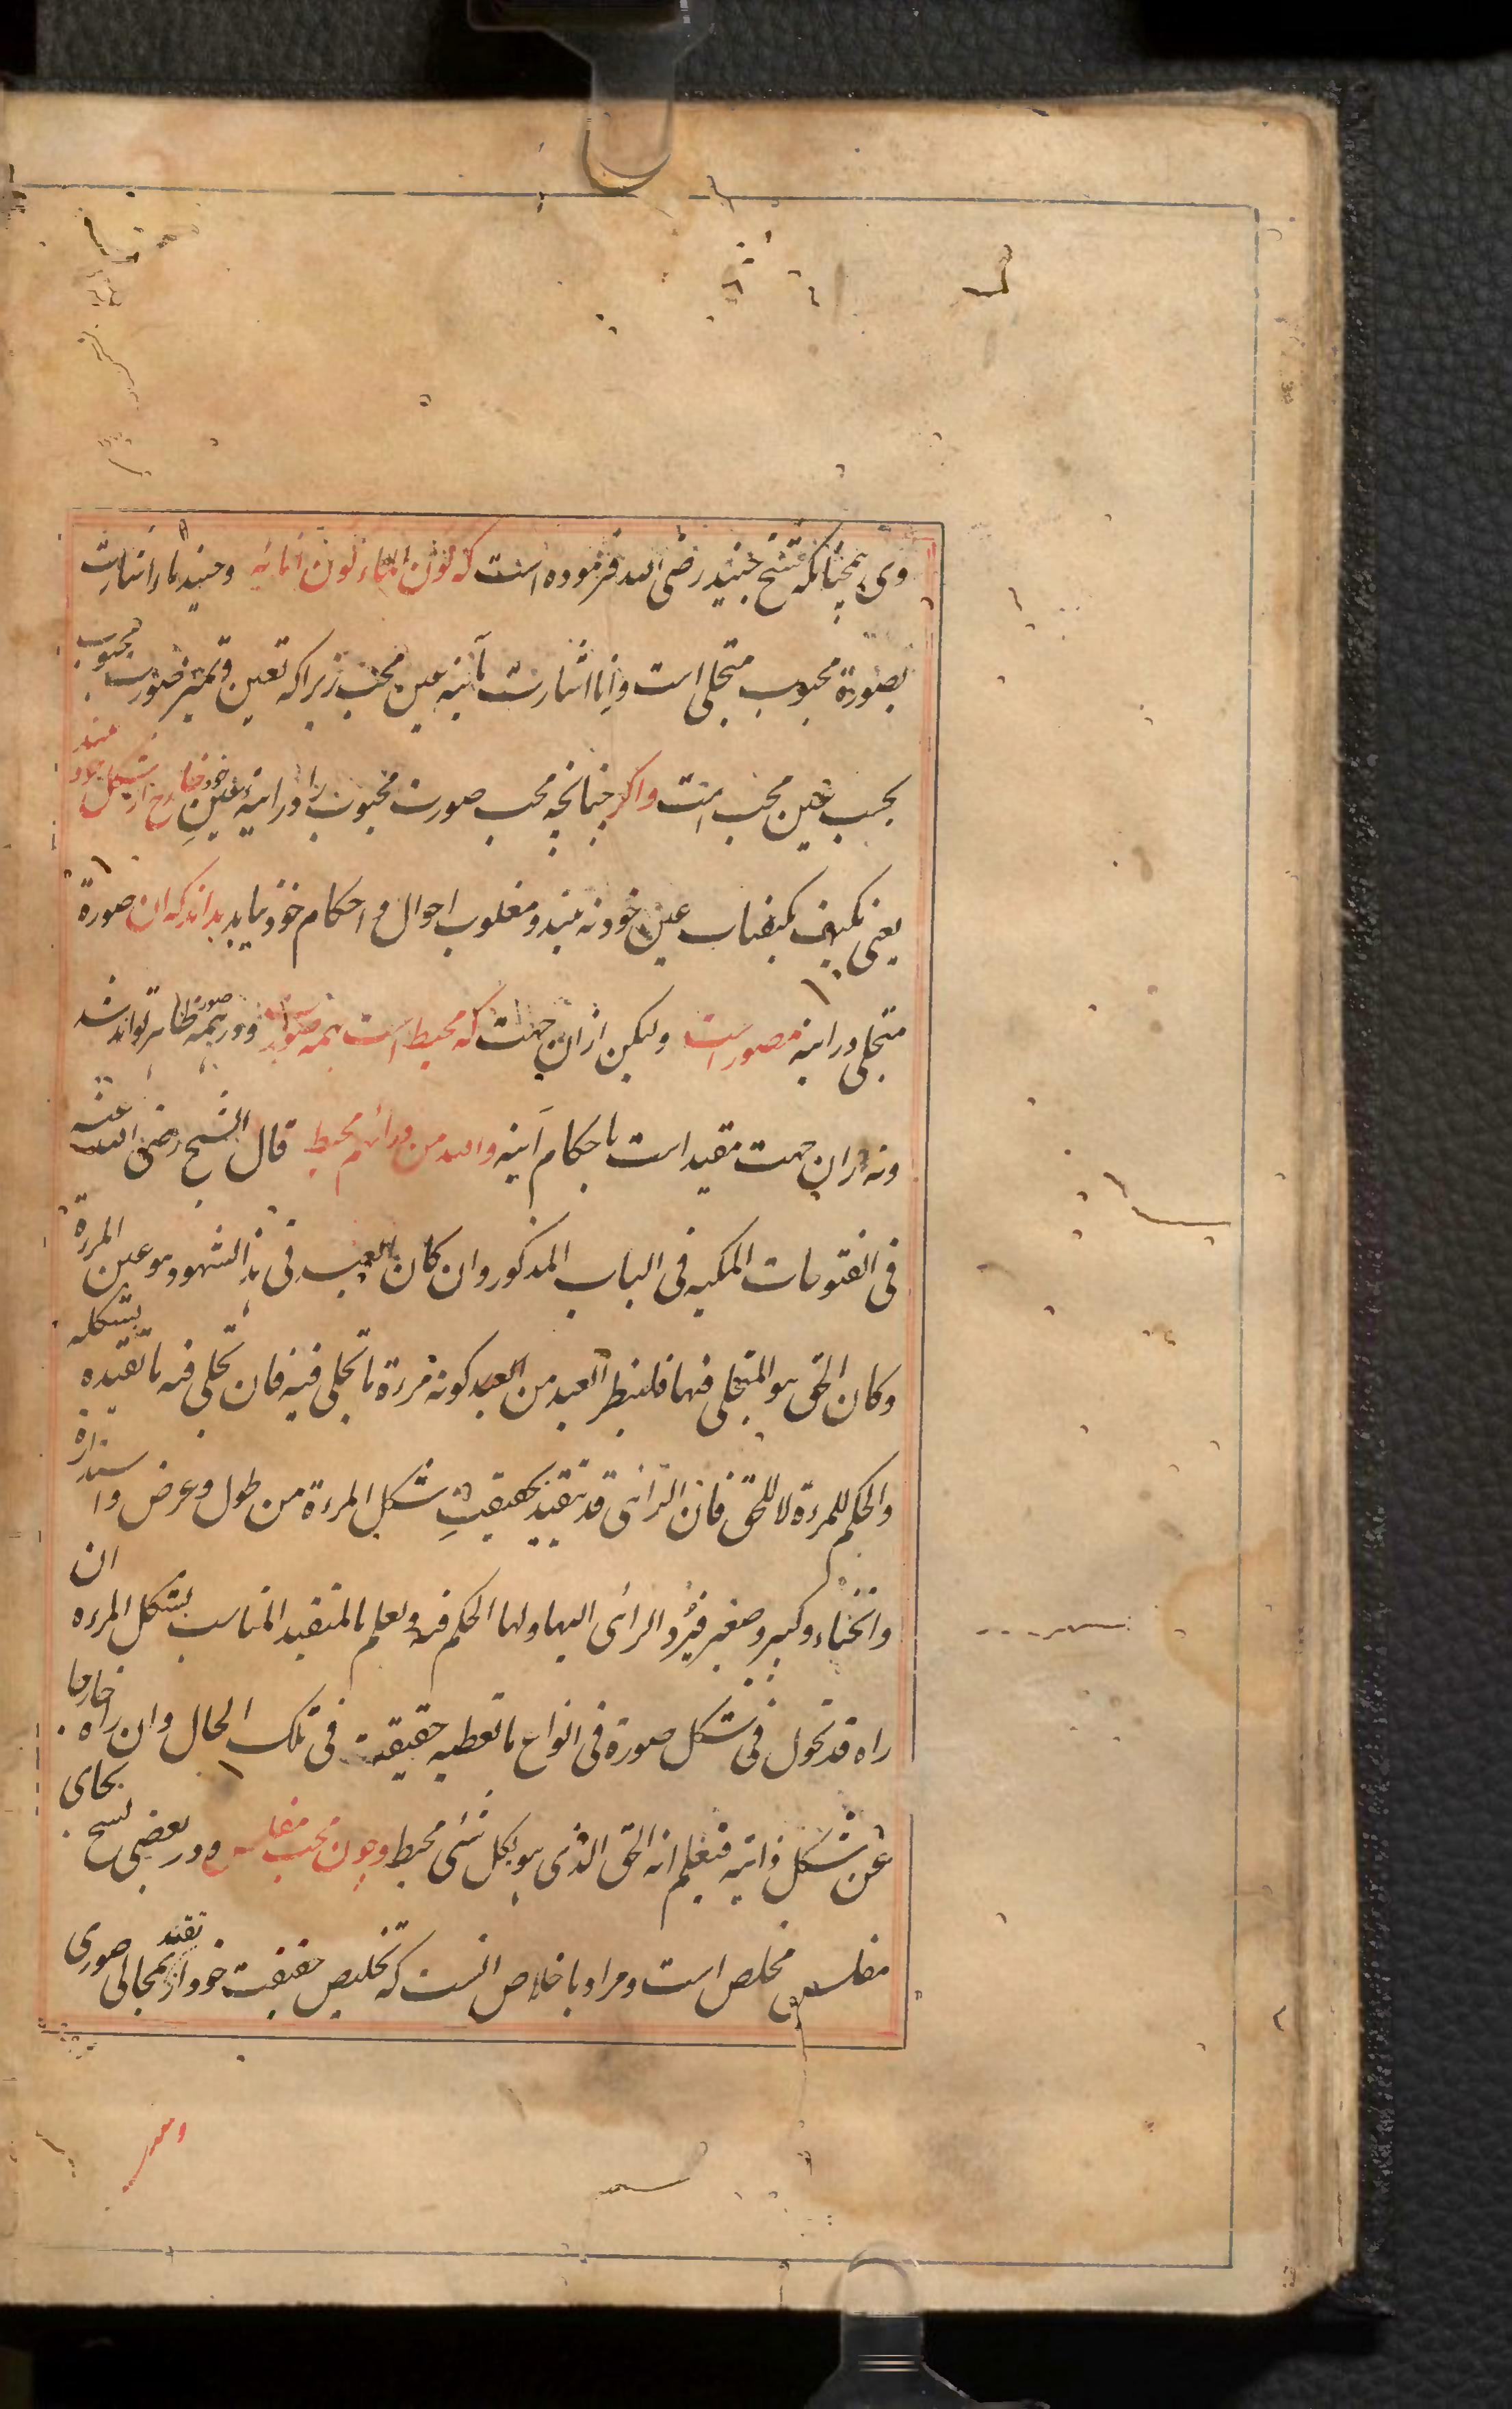 وی همچنانکه شیخ جنید رضی الله فرموده است که لون الماء لون انائه وجنید ماء اشارت
بصورة محبوب متجلی است وانا اشارت بآینه عین محب زیراکه تعین وتمیز صورت محبوب
بحسب عین محب است واکر چنانچه محب صورت محبوب را در اینهٔ عین خود خارج از شکل خود بیند
یعنی بکیف کیفیات عین خود نه بیند ومغلوب احوال و احکام خود نیابد بداند که ان صورة
متجلی در اینه مصور است ولیکن ازان جهت که محیط است بهمه صورت ودر همه صور ظاهر تواند شد
ونه ازان جهت مقید است باحکام آینه والله من ورائهم محیط قال الشیخ رضی الله عنه
فی الفتوحات المکیه فی الباب المذکور وان کان العبد فی هذا الشهود هو عین المرءة
وکان الحق هو المتجلی فیها فلینظر العبد من العبد کونه مرءة ما تجلی فیه فان تجلی فیه ما تقیده بشکله
والحکم للمرءة لا للحق فان الرائی قد یتقید بحقیقت شکل المرءة من طول وعرض واستدارة
وانحناء وکبر وصغر فیرد الرائی الیها ولها الحکم فیه ولعلم بالمتقید المناسب لشکل المرءه ان
راه قد تحول فی شکل صورة فی انواع ما تعطیه حقیقة فی تلک الحال وان راه خارجا
عن شکل ذاتیه فیعلم انه الحق الذی هو بکل شئی محیط وچون محب مفلس ودر بعضی نسخ بجای
مفلس مخلص است ومراد باخلاص انست که تخلیص حقیقت خود از تقید بمجالی صوری